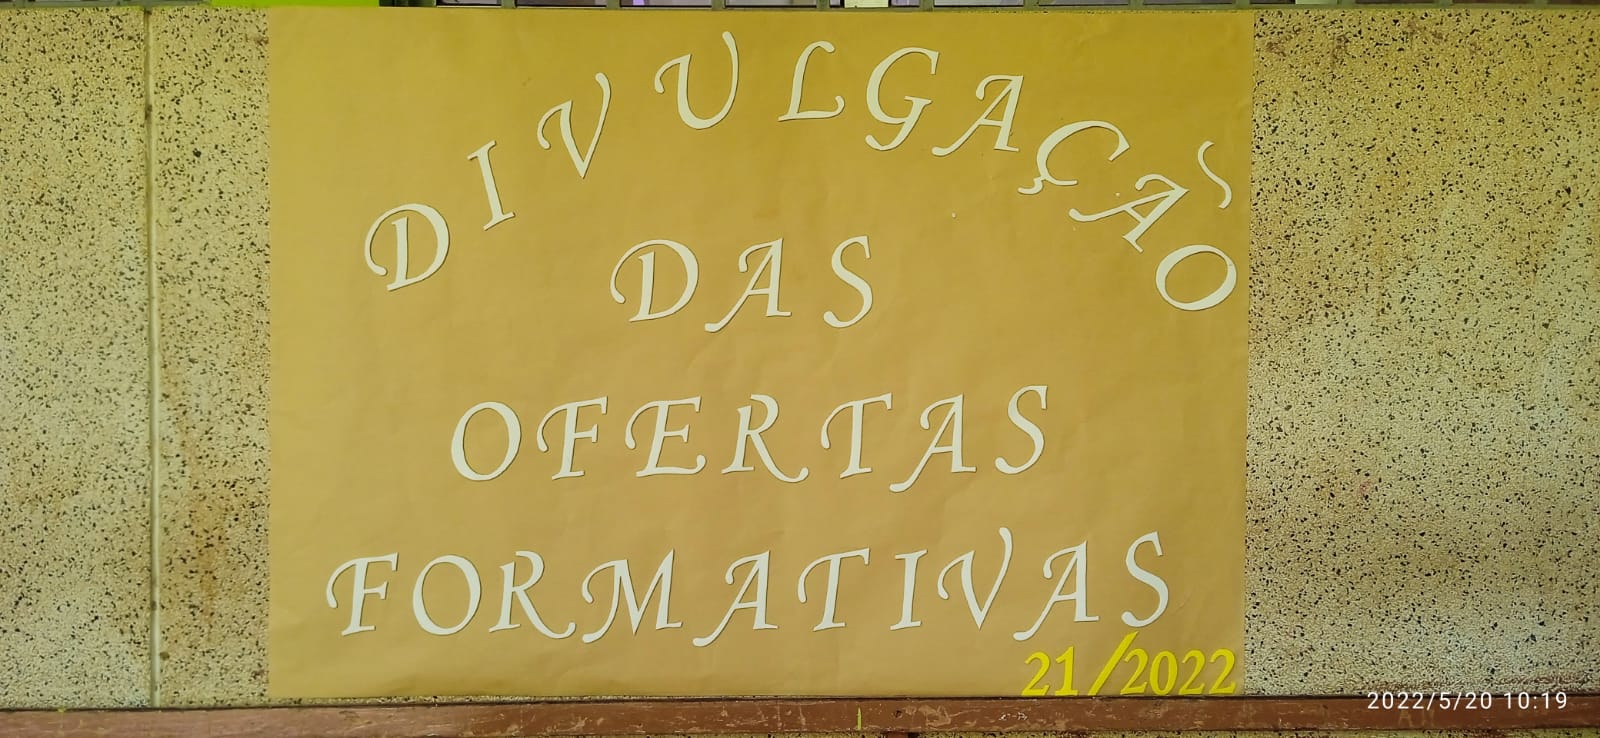 DIVULGAÇÃO
DAS
OFERTAS
FORMATIVAS
21/2022
2022/5/20 10:19